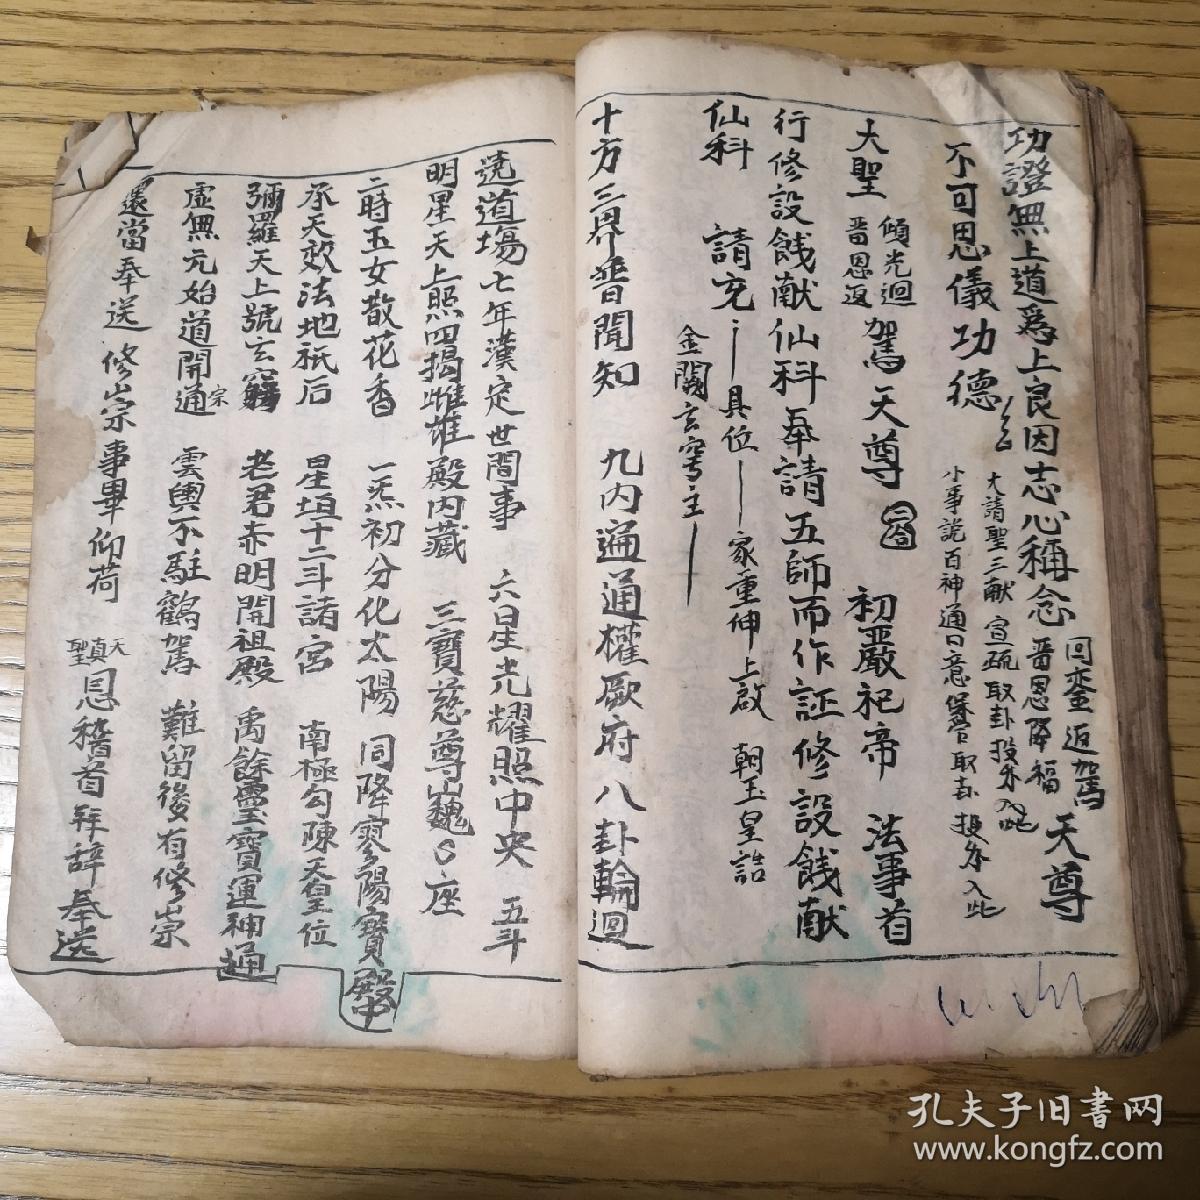 功證無上道為上良因志心稱念 回鑾返駕 普恩降福 天尊
不可思儀功德 大請聖三献宣疏取卦投外入此
小事說百神通口意 取卦投外入此
大聖 傾光迴 普恩返 駕天尊 初嚴祀帝 法事首
行修設餞献仙科奉請五師而作証修設餞献
仙科 請充 具位 家重伸上啟 朝玉皇誥
金闕玄穹主
十方三界普聞知 九内遍通權厥府八卦輪迴
遶道場七年漢定世間事 六星光耀照中央 五斗
明星天上照四揭雌雄殿内藏 三寶慈尊山巍 座
二時玉女散花香 一炁初分化太陽 同降寥陽寶殿中
承天效法地祇后 星垣十二斗諸宮 南極勾陳天皇位
彌羅天上號玄穹 老君赤明開祖殿 禹餘靈寶運神通
虛無元始道開通宗 雲輿不駐鶴駕 難留後有修崇
還當奉送 修崇事畢仰荷 天真聖恩稽首拜辞奉送
孔夫子旧書网
www.kongfz.com